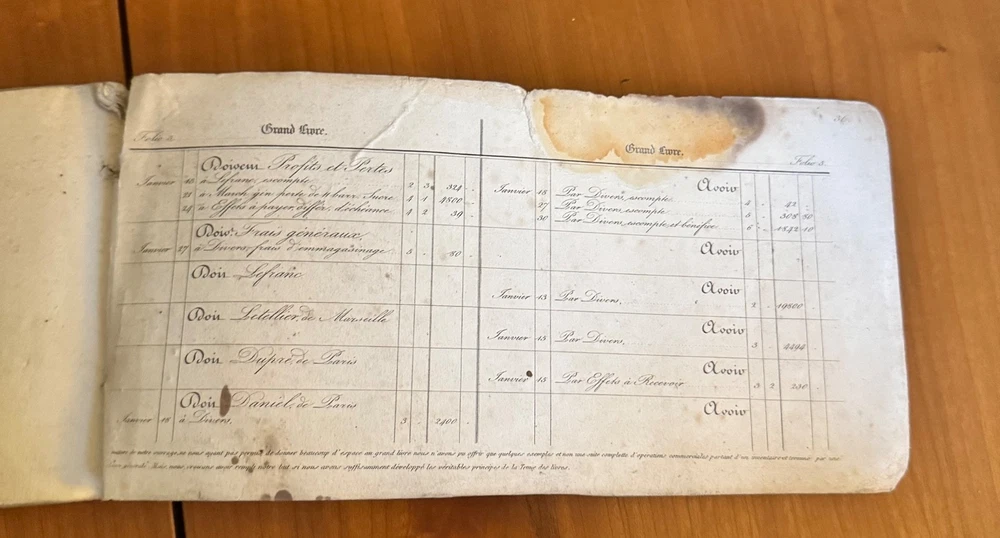 Folio 3.
Grand Livre.
Doivent Profits et Pertes
Janvier 18 à Lefranc, escompte 2 3 324 -
21 à March. gén. perte de 4 barr. Sucre 4 1 4800 -
24 à Effets à payer, différ. d'échéance 4 2 39 -
Doiv.t Frais généraux
Janvier 27 à Divers, frais d'emmagasinage 5 - 80 -
Doit Lefranc
Doit Letellier, de Marseille
Doit Dupré, de Paris
Doit Daniel, de Paris
Janvier 18 à Divers, 3 - 2400 -
36
Grand Livre.
Folio 3.
Avoir
Janvier 18 Par Divers, escompte 4 - 42 -
27 Par Divers, escompte 5 - 308 80
30 Par Divers, escompte et bénéfice 6 - 1842 10
Avoir
Avoir
Janvier 13 Par Divers, 2 - 19800 -
Avoir
Janvier 15 Par Divers, 3 - 4494 -
Avoir
Janvier 15 Par Effets à Recevoir 3 2 230 -
Avoir
nature de notre ouvrage ne nous ayant pas permis de donner beaucoup d'espace au grand livre nous n'avons pu offrir que quelques exemples et non une suite complette d'opérations commerciales partant d'un inventaire et terminée par
Mais nous croyons avoir rempli notre but si nous avons suffisamment développé les véritables principes de la Tenue des livres.